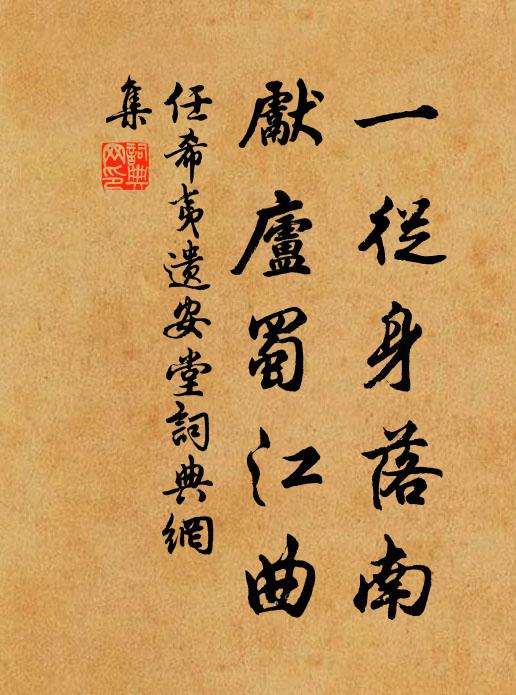 一從身落南
獻廬蜀江曲
任希夷遺安堂詞典網
集
詞典網印